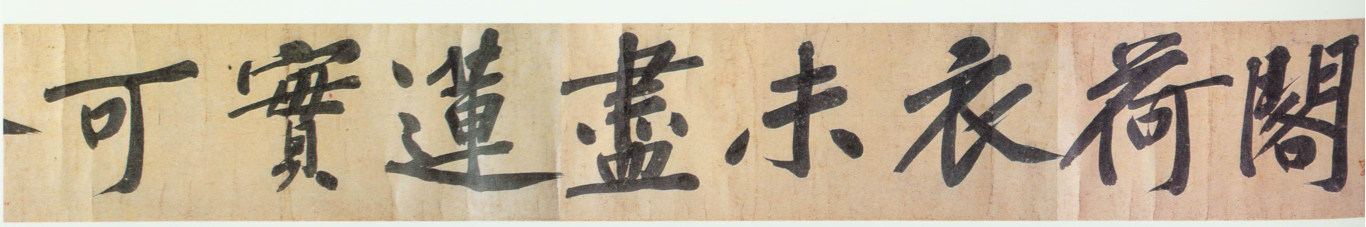 閣荷衣未盡蓮實可